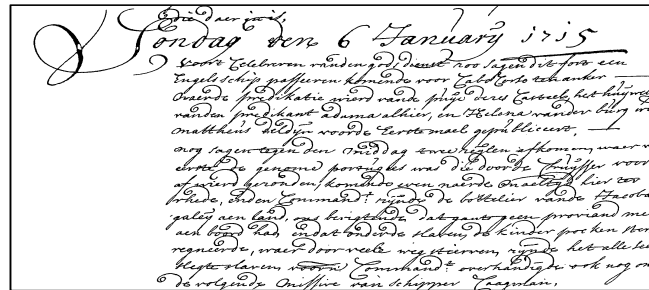 die daer in is,
Sondag den 6 January 1715
voort Celebreren vanden godsdienst soo sagen dit fort een
Engels schip passeren komende voor Cabo Corso ten anker
naer de predikatie wierd vande puije deses Casteels het huijwe
vanden predikant aduma alhier, en Helena vander burg
mattheus heldijn voorde Eerste mael gepubliceert,
nog sagen tegen den middag twee zeijlen afkomen, waer
eerste de genome portugees was die door de Cruijsser voor
af wierd gesonden, komende even naer de maeltyd hier ter
rhede, en den Command.t zijnde de bottelier vande Jacoba
galeij aen land, ons berigtende dat gants geen proviand me
aen boord had, en dat onder de slaven de kinder pocken ster
regneerde, waer door veele weg stierven, zijnde het alle
slegte slaven Command.t overhandigde ook nog on
de volgende missive van schipper Caagman,